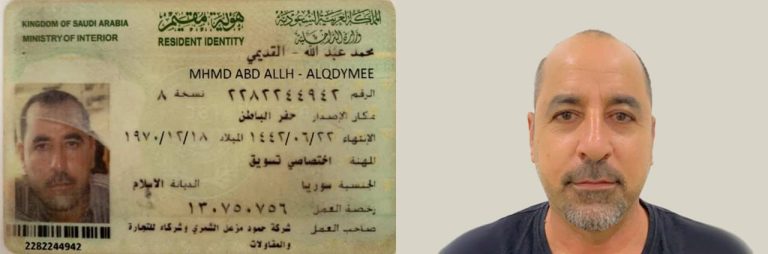 KINGDOM OF SAUDI ARABIA
MINISTRY OF INTERIOR
هوية مقيم
RESIDENT IDENTITY
المملكة العربية السعودية
وزارة الداخلية
محمد عبد الله - القديمي
MHMD ABD ALLH - ALQDYMEE
الرقم ٢٢٨٢٢٤٤٩٤٢ نسخة ٨
مكان الإصدار حفر الباطن
الإنتهاء ١٤٤٢/٠٦/٢٢ الميلاد ١٩٧٠/١٢/١٨
المهنة اختصاصي تسويق
الجنسية سوريا الديانة الاسلام
رخصة العمل ١٣٠٧٥٠٧٥٦
صاحب العمل شركة حمود مزعل الشمري وشركاه للتجارة
والمقاولات
2282244942